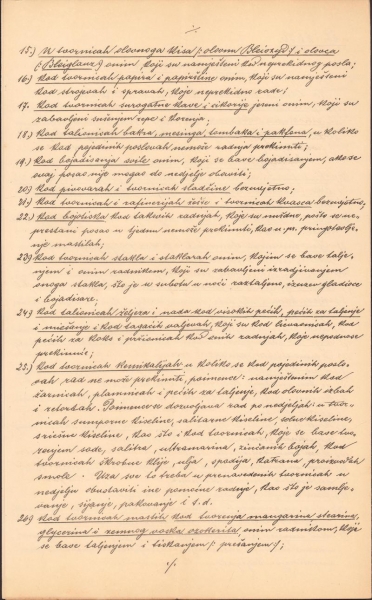 15.) U tvornicah olovnoga kisa /: olovni Bleioxyd :/ i olovca
/: Bleiglanz :/ onim, koji su namješteni kod neprekidnog posla;
16.) Kod tvornicah papira i papirštine onim, koji su namješteni
kod strojevah i spravah, koje neprekidno rade;
17. Kod tvornicah surogatne kave i cikorije jesu onim, koji su
zabavljeni sušenjem repe i korenja;
18.) Kod talionicah bakra, mesinga, tombaka i pakfona, u koliko
se kod pojedinih poslovah nemože radnja prekinuti;
19.) Kod bojadisanja svile onim, koji se bave bojadisanjem, ako se
ovaj posao nije mogao do nedjelje obaviti;
20.) Kod pivovarah i tvornicah sladčine bezuvjetno;
21.) Kod tvornicah i rafinerijah žeste i tvornicah kvasca bezuvjetno;
22.) Kod bojotiska kod takovih radnjah, koje su nuždne, pošto se ne
prestani posao u tjednu nemože prekinuti, kao n. pr. pri
nje mastilah;
23.) Kod tvornicah stakla i staklarah onim, kojim se bave talje-
njem i onim radnikom, koji su zabavljeni izradjivanjem
onoga stakla, što je u subotu u noći raztaljeno, izuzev gladioce
i bojadisare.
24.) Kod talionicah željeza i nada kod visokih pećih, pećih za taljenje
i miešanje i kod tažaćih valjevah, koji su kod ljevaonicah, kod
pećih za koks i pržionicah kod onih radnjah, koje nepodnose
prekinuće;
25.) Kod tvornicah kemikalijah u koliko se kod pojedinih poslo-
vah rad ne može prekinuti, poimence: namještenim kod
žarnicah, plamnicah i pećih za taljenje, kod olovnih izbah
i retortah. Poimence se dozvoljava rad po nedjeljah: u tvor-
nicah sumporne kiseline, salitarne kiseline, solne kiseline,
srićine kiseline, kao što i kod tvornicah, koje se bave tvo-
renjem sode, salitra, ultramarina, zinčanih bojah, kod
tvornicah škrobne klije, ulja, spodija, katrana, proizvodah
smole. Uza sve to treba u prenavedenih tvornicah u
nedjelju obustaviti ine pomoćne radnje, kao što je samlje-
vanje, sijanje, pakovanje i. t. d.
26.) Kod tvornicah mastih kod tvorenja margarina stearina,
glycerina i zemnog voska ozokerita onim radnikom, koji
se bave taljenjem i tiskanjem /: prešanjem :/;